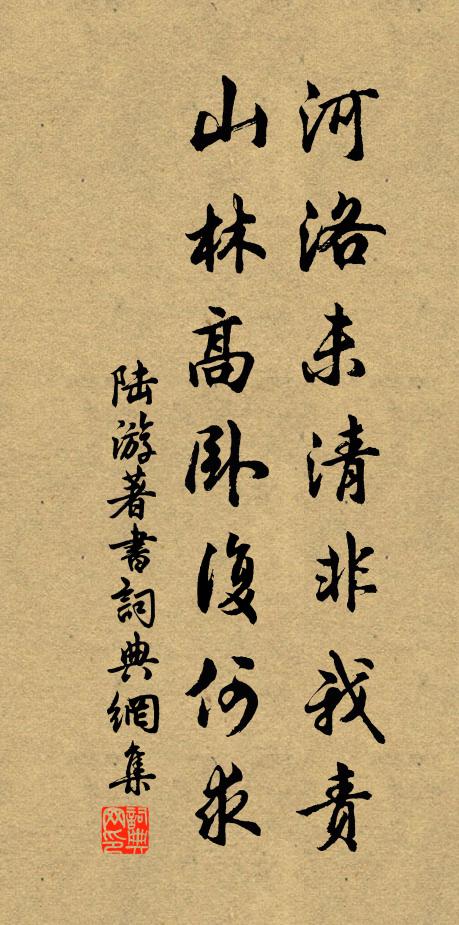 河洛未清非我責
山林高卧復何求
陸游著書詞典網集
詞典網印